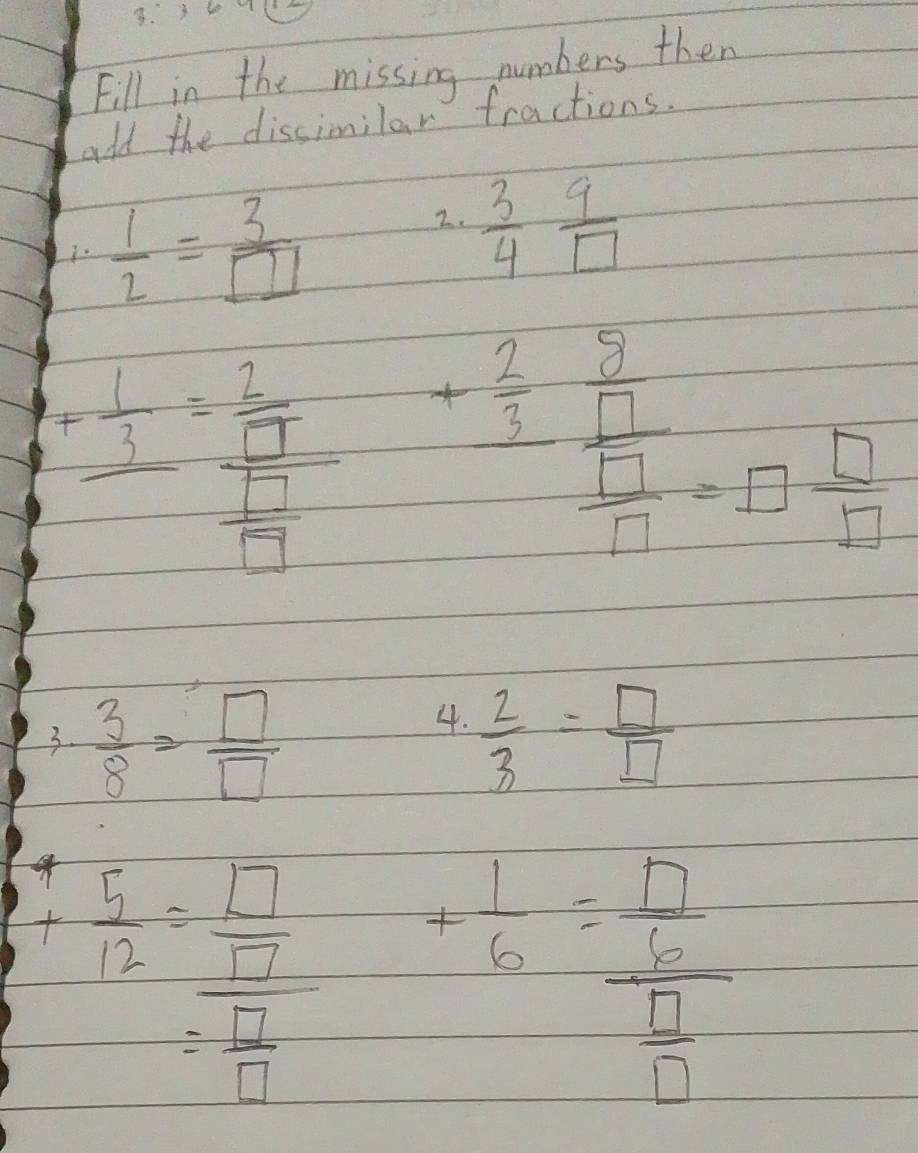 3. 3 6 9 12
Fill in the missing numbers then
add the dissimilar fractions.
1. 1/2 = 3/□ 2. 3/4 9/□
+ 1/3 = 2/□ + 2/3 8/□
□/□ □/□ = □ □/□
3. 3/8 = □/□ 4. 2/3 = □/□
+ 5/12 = □/□ + 1/6 = □/6
= □/□ □/□